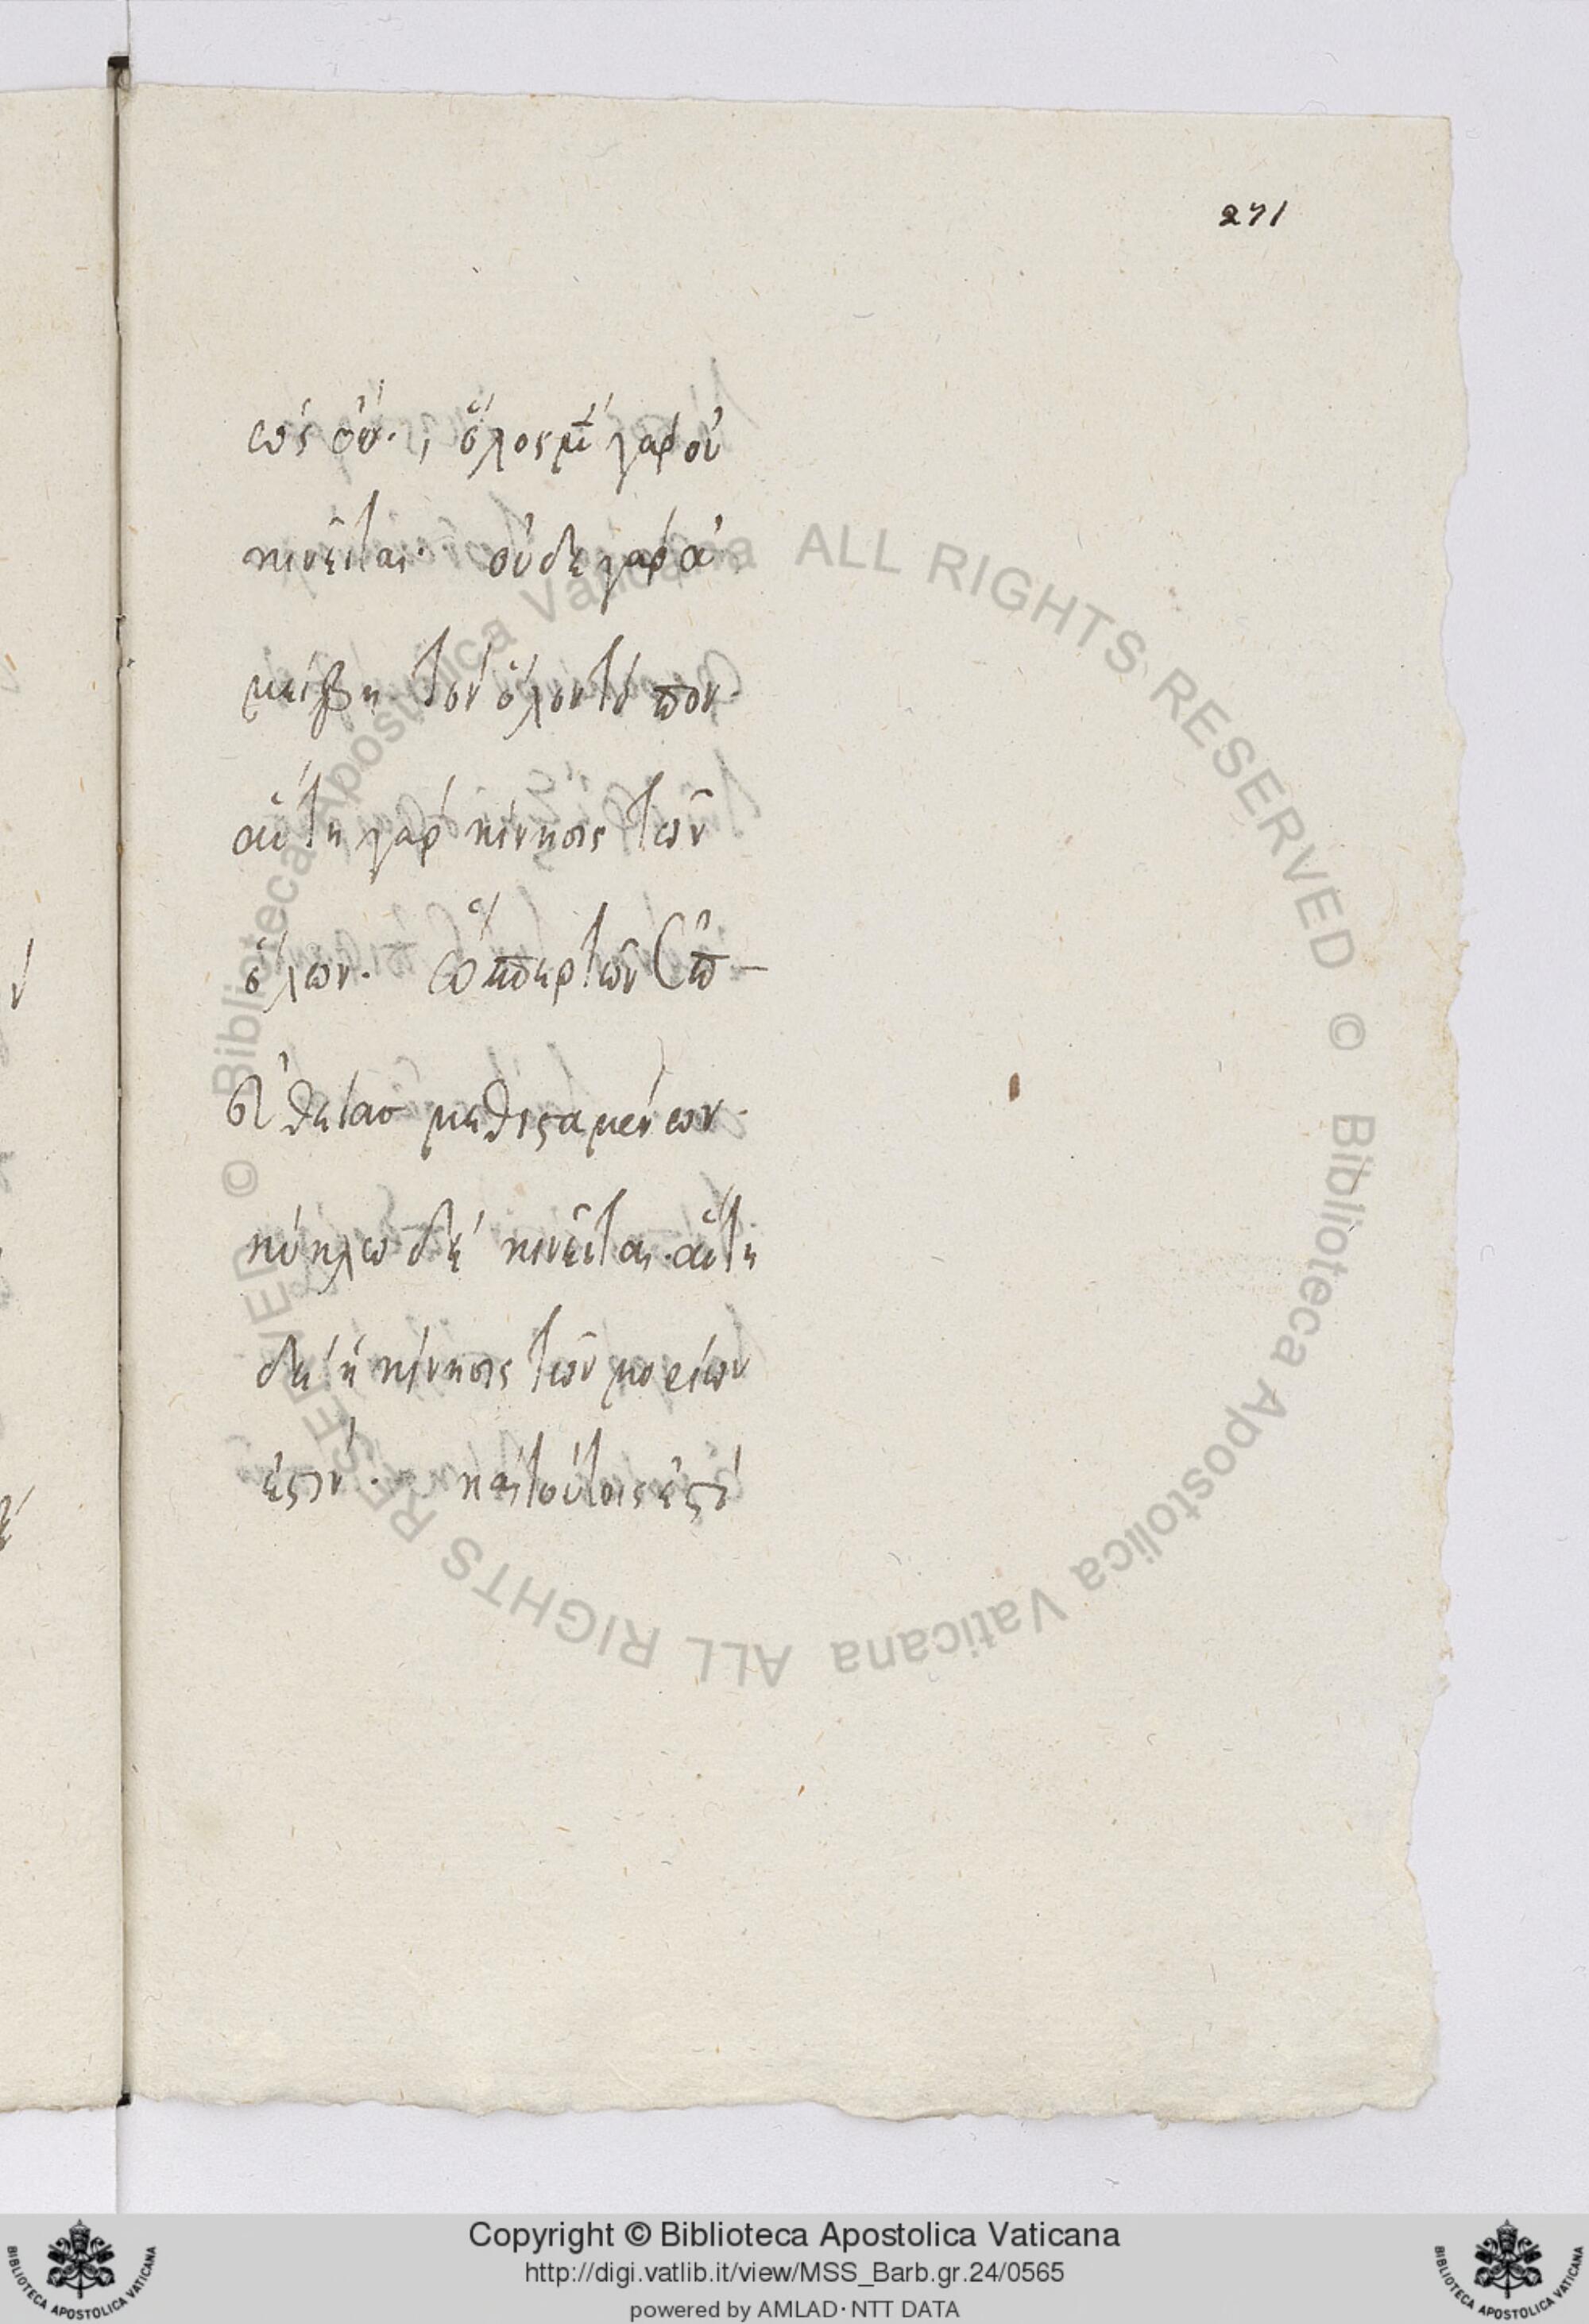 271
ὡς οὔ· ὅλος μὲν γὰρ οὐ
κινεῖται· οὐδε γὰρ ἀ
μείβει τὸν ὅλον τόπον·
αὕτη γὰρ κίνησις τῶν
ὅλων· ὥσπερ τῶν ἐπ
εὐθείας μεθισταμένων·
κύκλω δὲ κινεῖται· αὕτη
δὲ ἡ κίνησις τῶν μορίων
ἐστιν· καὶ τούτοις ἐστὶ
© Biblioteca Apostolica Vaticana ALL RIGHTS RESERVED © Biblioteca Apostolica Vaticana ALL RIGHTS RESERVED
Copyright © Biblioteca Apostolica Vaticana
http://digi.vatlib.it/view/MSS_Barb.gr.24/0565
powered by AMLAD·NTT DATA
BIBLIOTECA APOSTOLICA VATICANA
BIBLIOTECA APOSTOLICA VATICANA